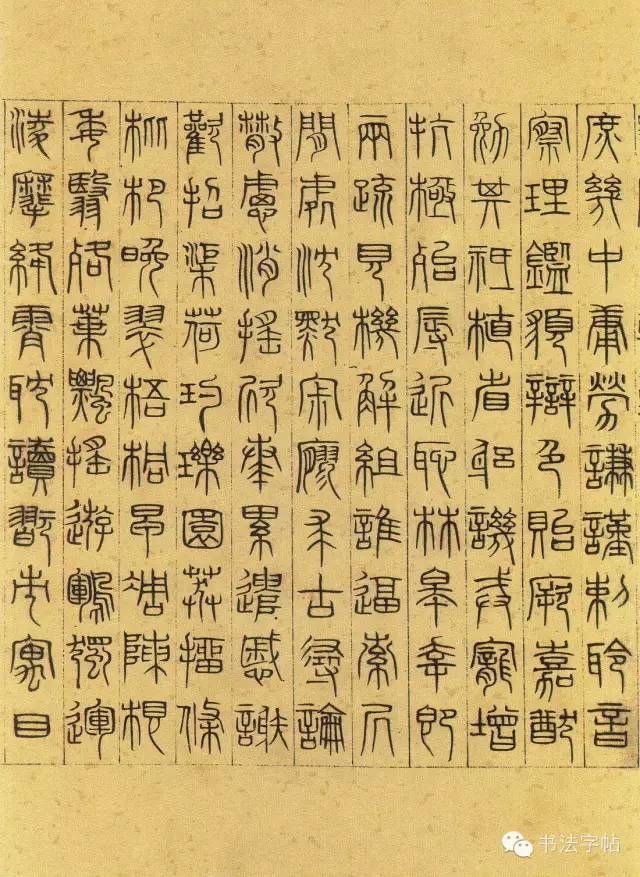 庶幾中庸勞謙謹勅聆音
察理鑑貌辯色貽厥嘉猷
勉其祗植省躬譏誡寵增
抗極殆辱近恥林皋幸即
兩疏見機解組誰逼索居
閒處沈默寂寥求古尋論
散慮逍遙欣奏累遣慼謝
歡招渠荷玓瓅園莽抽條
枇杷晚翠梧桐早凋陳根
委翳落葉飄颻遊鵾獨運
凌摩絳霄耽讀翫市寓目
书法字帖